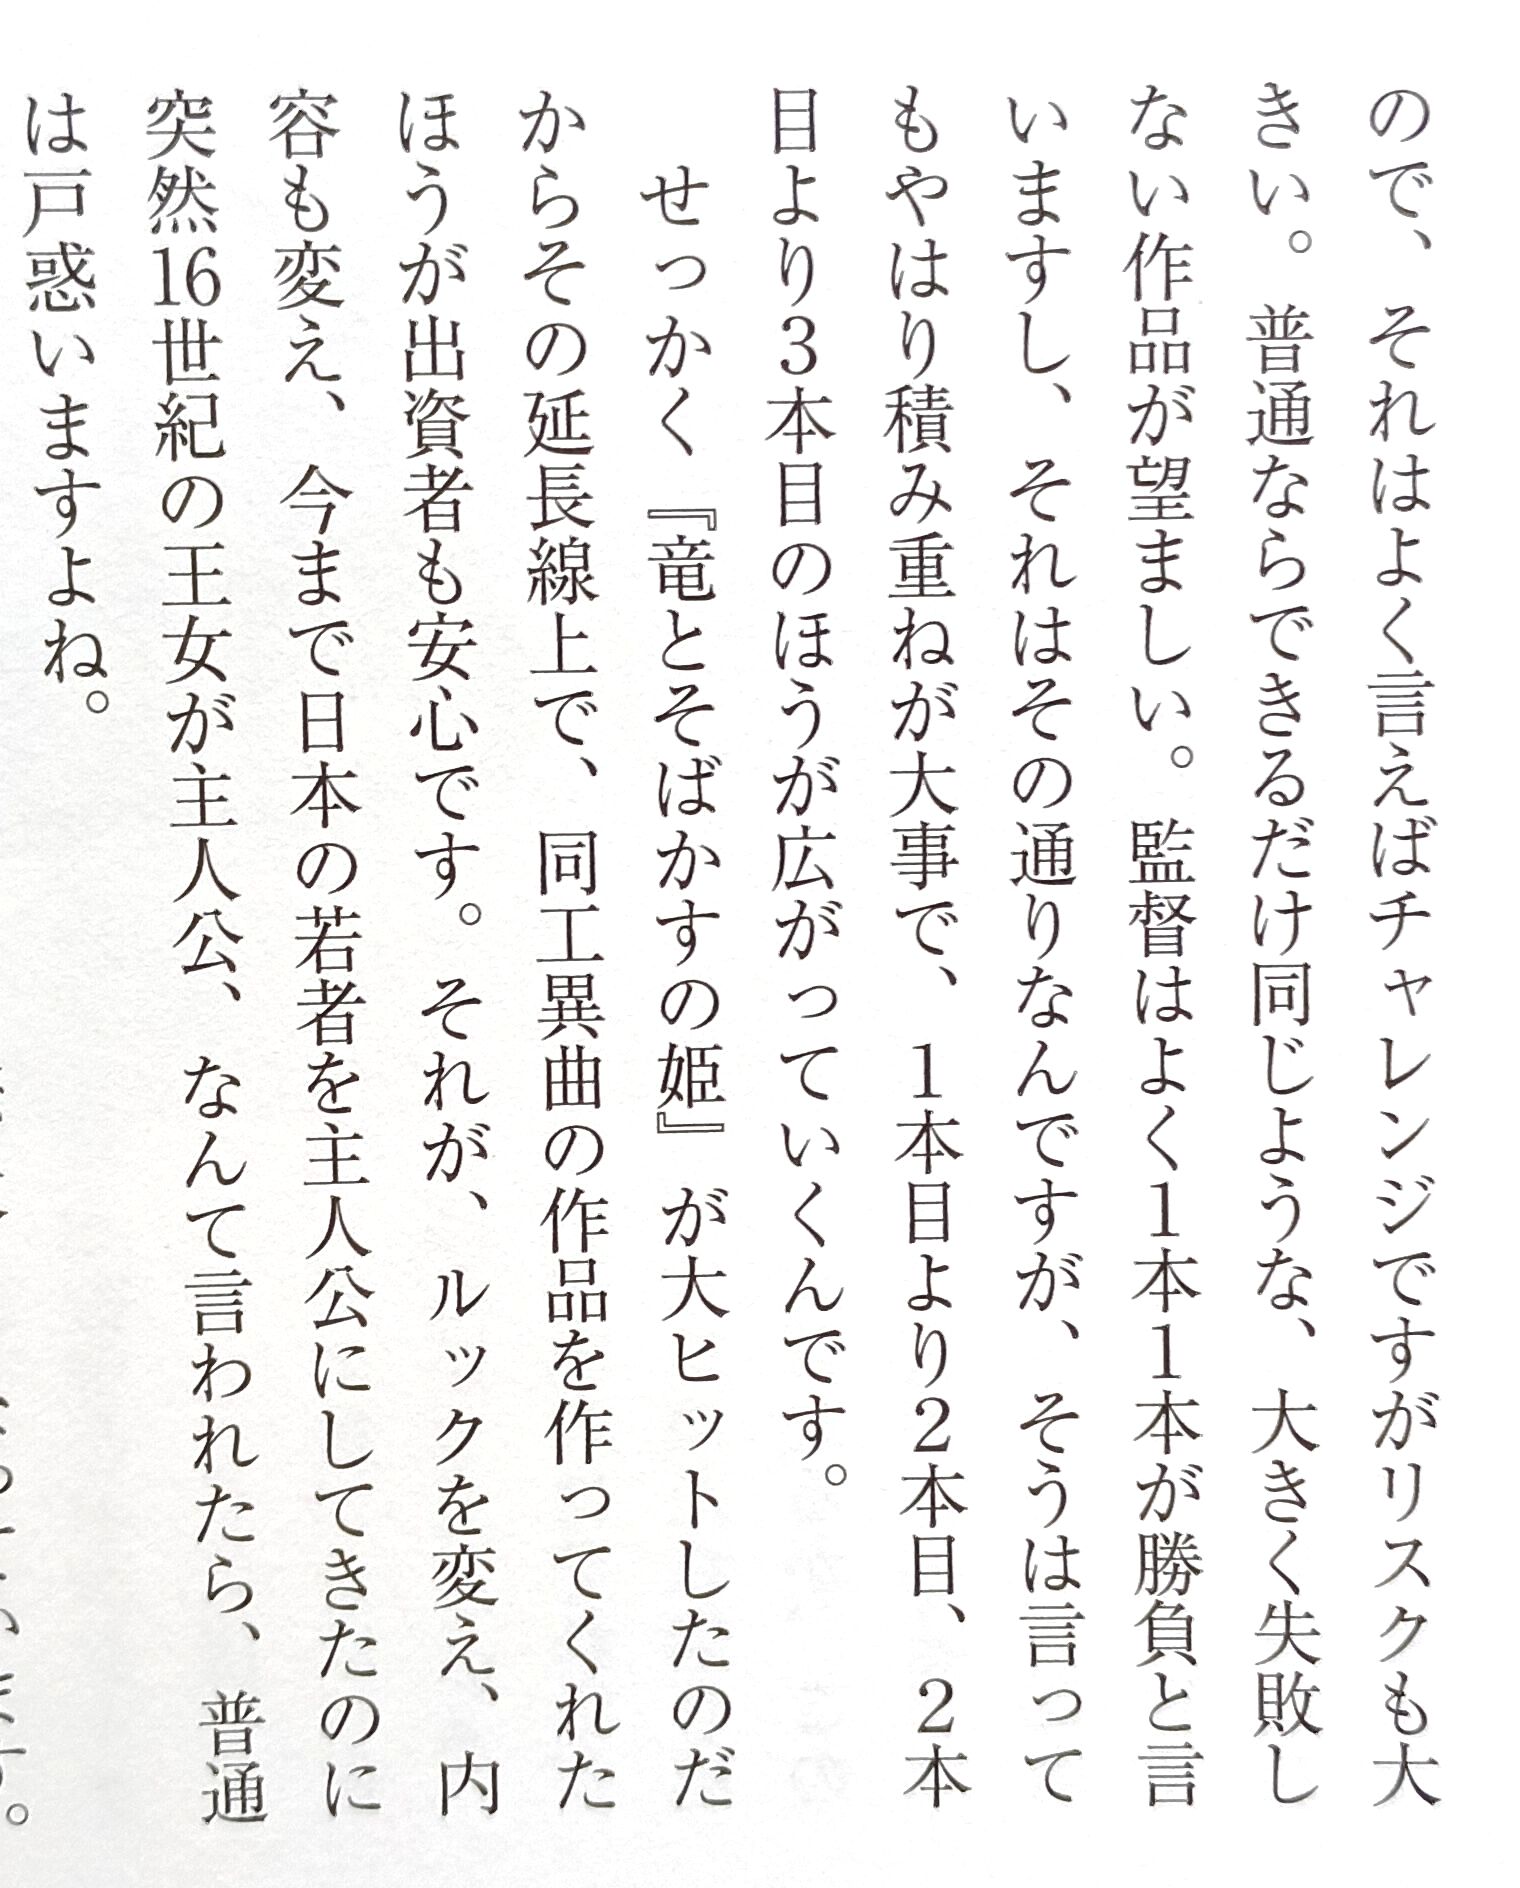 ので、それはよく言えばチャレンジですがリスクも大
きい。普通ならできるだけ同じような、大きく失敗し
ない作品が望ましい。監督はよく1本1本が勝負と言
いますし、それはその通りなんですが、そうは言って
もやはり積み重ねが大事で、1本目より2本目、2本
目より3本目のほうが広がっていくんです。
せっかく『竜とそばかすの姫』が大ヒットしたのだ
からその延長線上で、同工異曲の作品を作ってくれた
ほうが出資者も安心です。それが、ルックを変え、内
容も変え、今まで日本の若者を主人公にしてきたのに
突然16世紀の王女が主人公、なんて言われたら、普通
は戸惑いますよね。